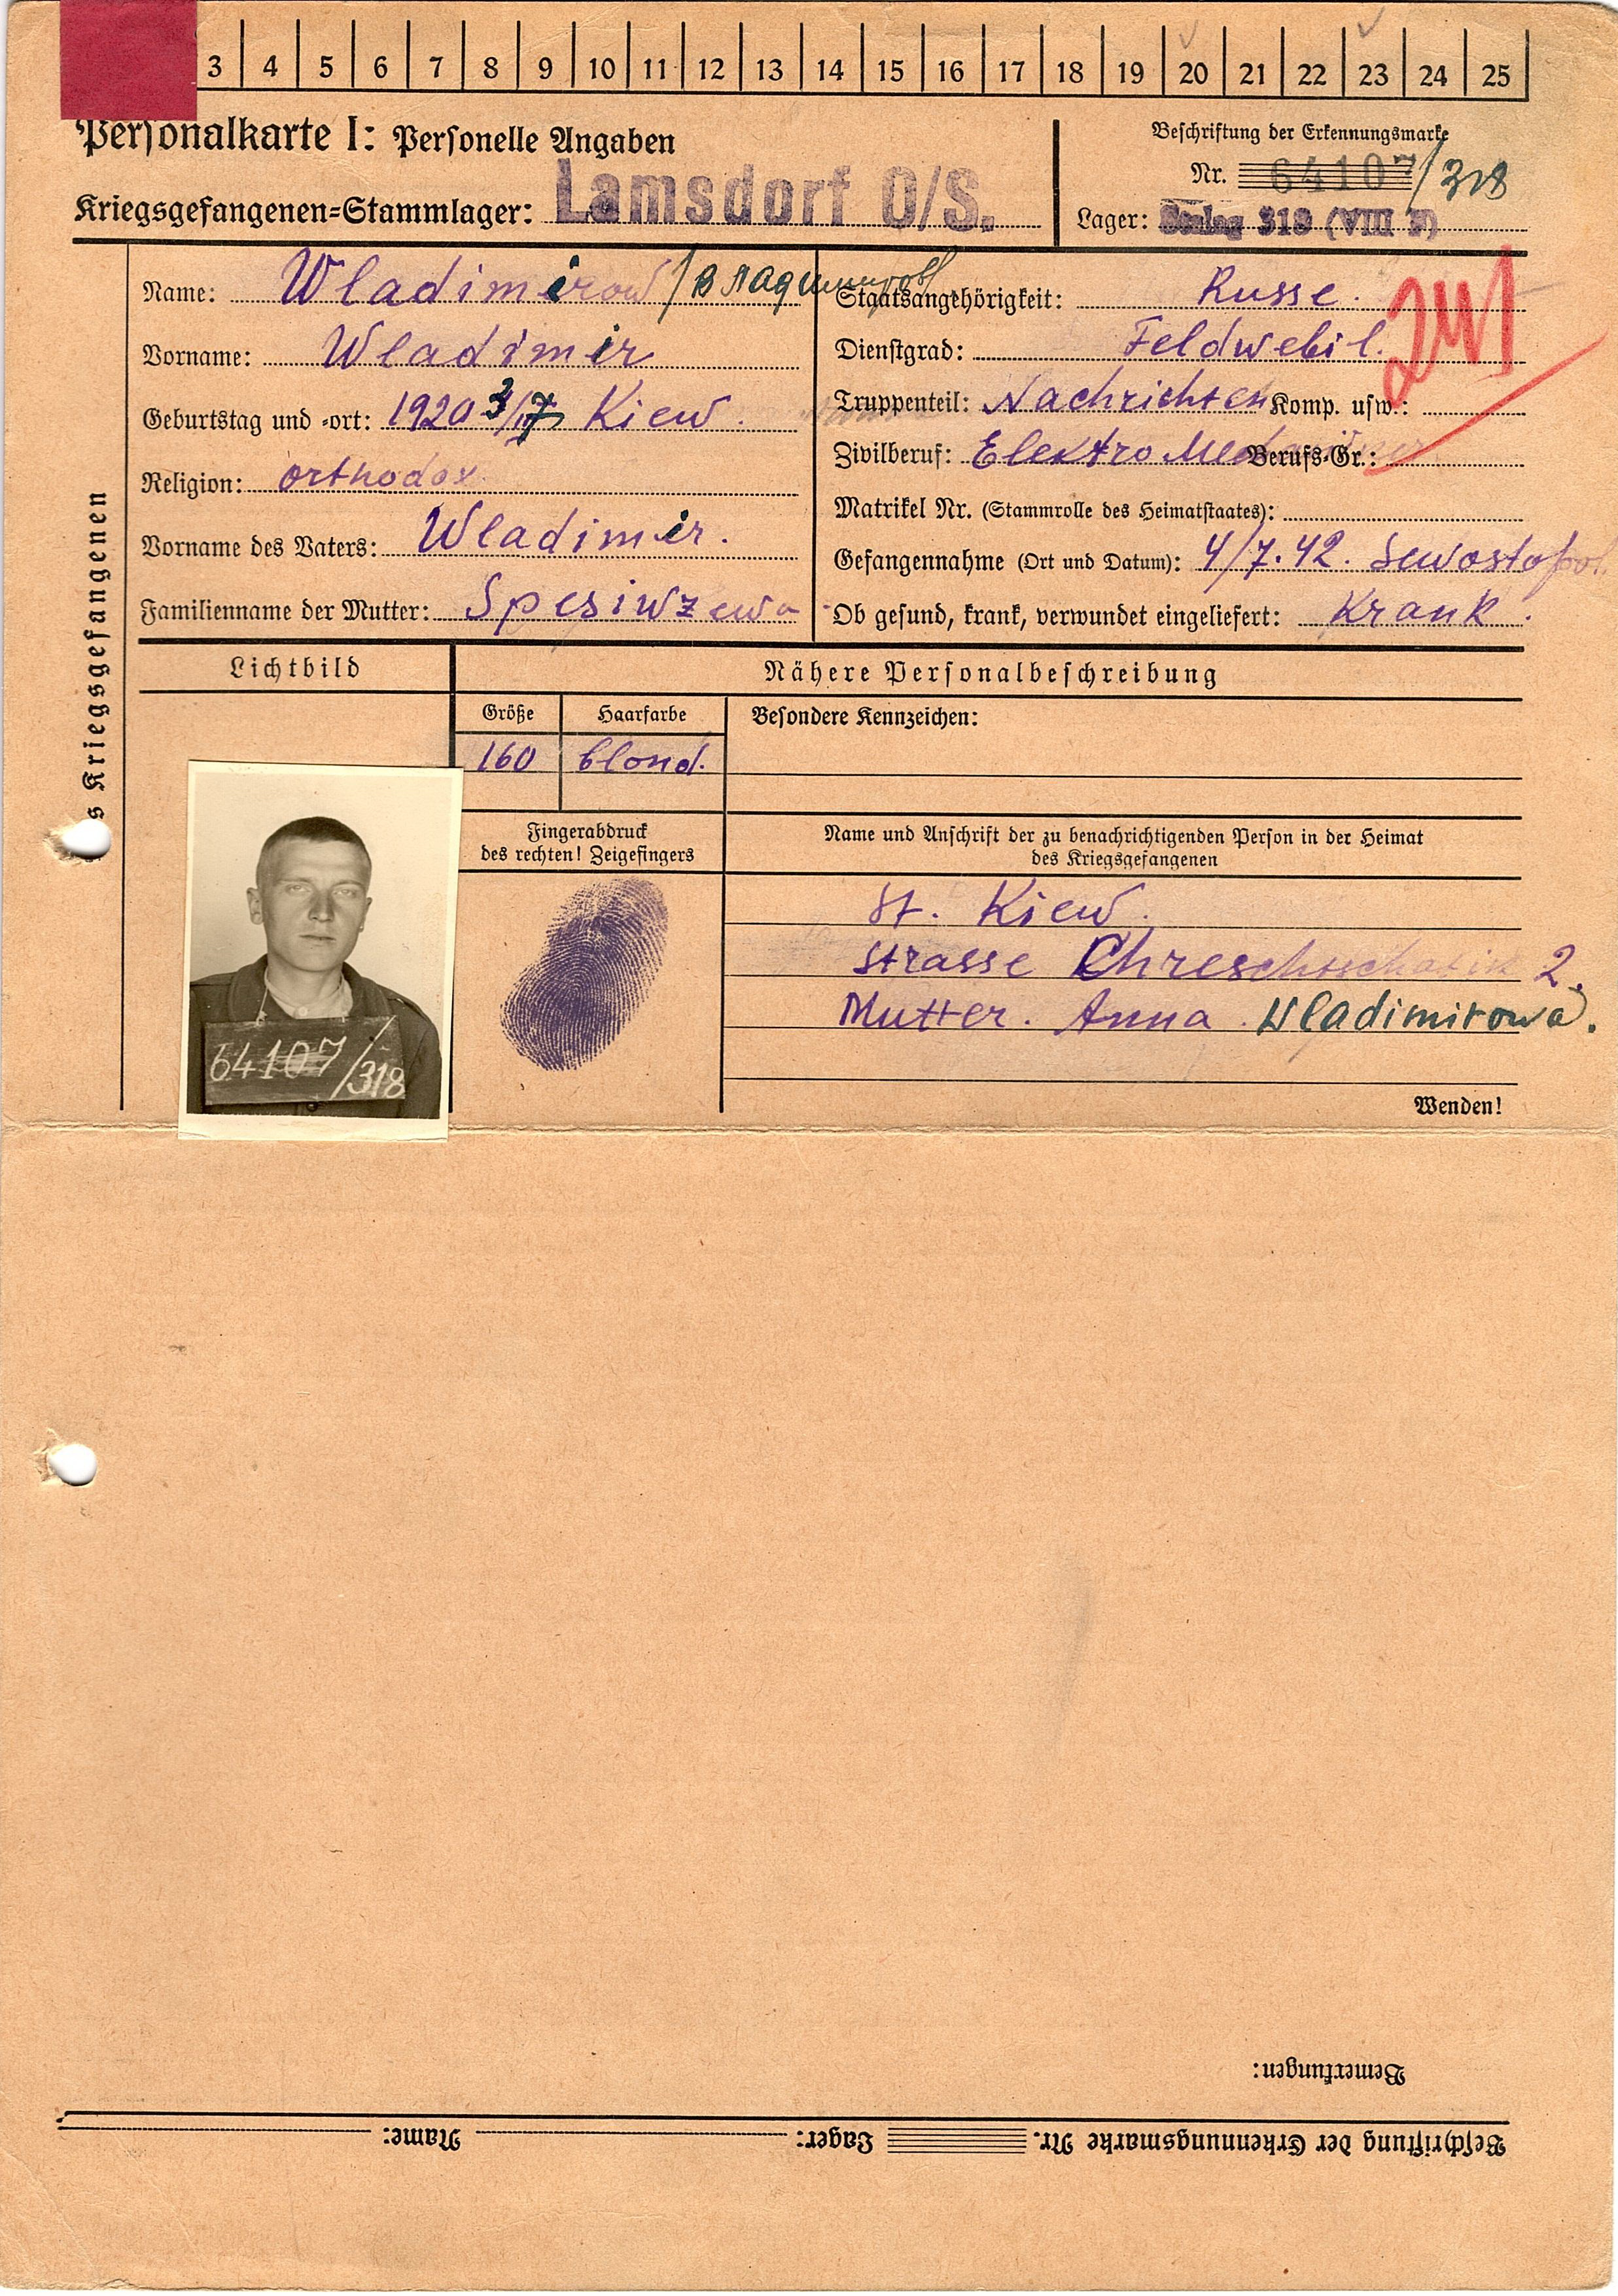 3 4 5 6 7 8 9 10 11 12 13 14 15 16 17 18 19 20 21 22 23 24 25
Personalkarte I: Personelle Angaben
Kriegsgefangenen=Stammlager: Lamsdorf O/S.
Beschriftung der Erkennungsmarke
Nr. 64107/318
Lager: Stalag 318 (VIII F)
s Kriegsgefangenen
Name: Wladimirow / Владимиров
Vorname: Wladimir
Geburtstag und -ort: 1920 3/17 Kiew.
Religion: orthodox
Vorname des Vaters: Wladimir.
Familienname der Mutter: Spesiwzewa
Staatsangehörigkeit: Russe.
241
Dienstgrad: Feldwebil.
Truppenteil: Nachrichten Komp. usw.:
Zivilberuf: Elektro Berufs-Gr.:
Matrikel Nr. (Stammrolle des Heimatstaates):
Gefangennahme (Ort und Datum): 4/7.42. Sewostopol.
Ob gesund, krank, verwundet eingeliefert: Krank.
Lichtbild
Nähere Personalbeschreibung
Größe Haarfarbe
160 blond.
Besondere Kennzeichen:
64107/318
Fingerabdruck
des rechten! Zeigefingers
Name und Anschrift der zu benachrichtigenden Person in der Heimat
des Kriegsgefangenen
St. Kiew.
Strasse Chreschtschatik 2.
Mutter. Anna. Wladimirowa.
Wenden!
Bemerkungen:
Beschriftung der Erkennungsmarke Nr. Lager: Name: